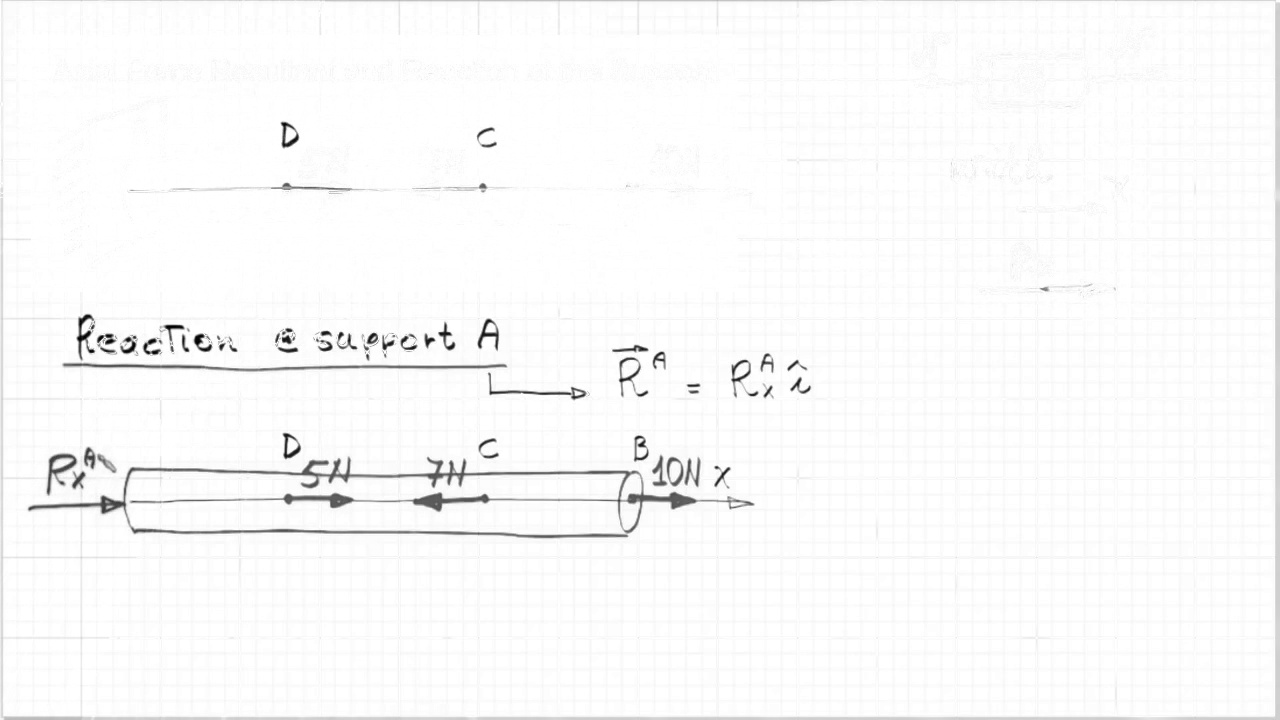 D C
Reaction @ support A
R^A = R_x^A î
D C B
R_x^A 5N 7N 10N x